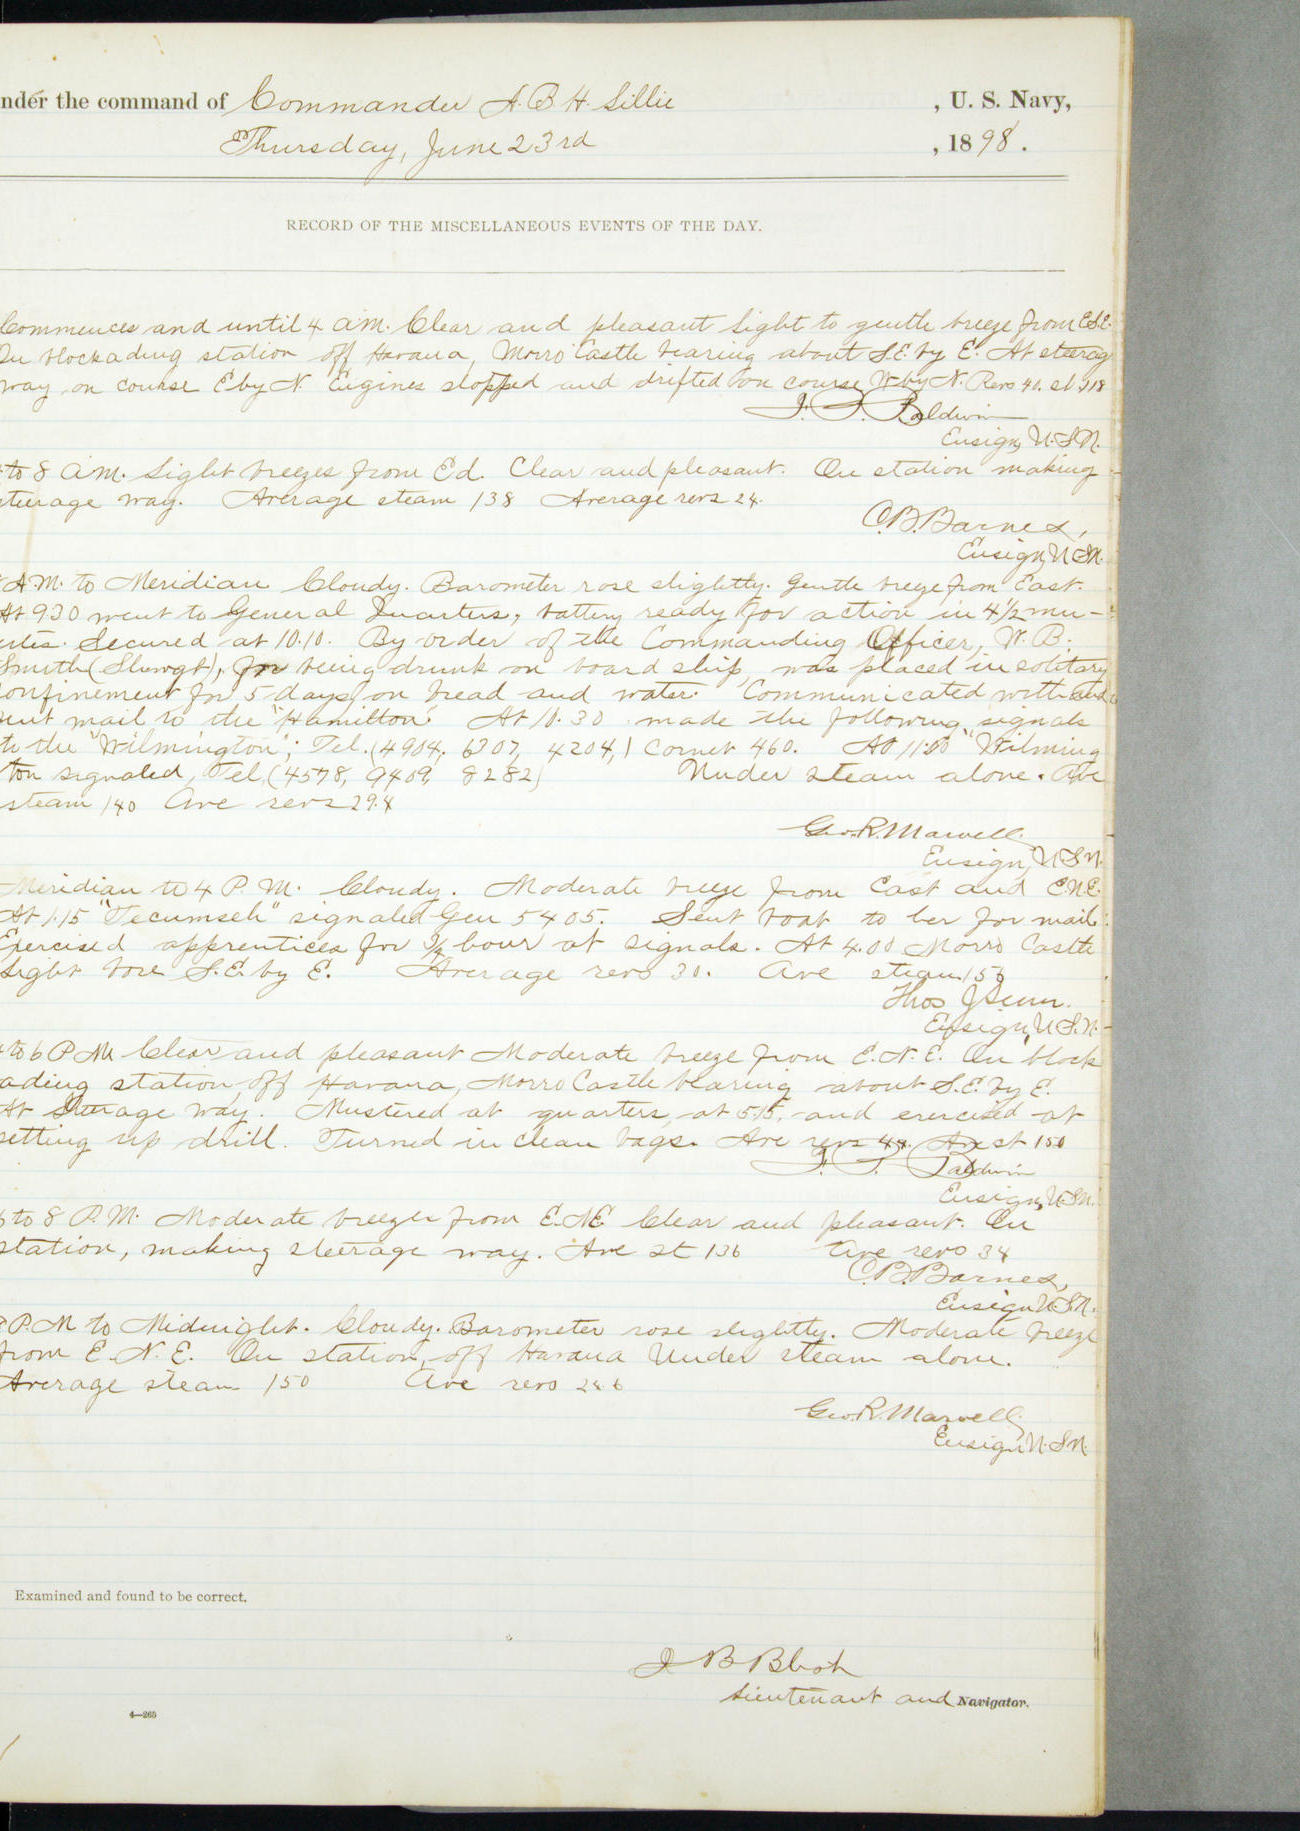 nder the command of Commander A. B. H. Lillie , U. S. Navy,
Thursday, June 23rd , 1898.
RECORD OF THE MISCELLANEOUS EVENTS OF THE DAY.
Commences and until 4 a.m. Clear and pleasant Light to gentle breeze from E.S.E.
On blockading station off Havana, Morro Castle bearing about S.E. by E. At steerage
way on course E by N. Engines stopped and drifted on course W by N. Revs 40. st. 118
Baldwin
Ensign, U.S.N.
to 8 a.m. Light breezes from Ed. Clear and pleasant. On station making
steerage way. Average steam 138 Average revs 24.
C.B. Barnes,
Ensign, U.S.N.
A.M. to Meridian Cloudy. Barometer rose slightly. Gentle breeze from East.
At 9.30 went to General Quarters, battery ready for action in 4 1/2 min-
utes. Secured at 10.10. By order of the Commanding Officer, W. B.
Smith, for being drunk on board ship, was placed in solitary
confinement for 5 days on bread and water. Communicated with and
sent mail to the "Hamilton". At 10.30 made the following signals
to the "Wilmington"; Tel. (4904, 6207, 4204,) Cornet 460. At 11.00 "Wilming
ton signaled, Tel. (4578, 9409, 8282) Under steam alone. Ave
steam 140 Ave revs 29.4
Geo. R. Marvell
Ensign, U.S.N.
Meridian to 4 P.M. Cloudy. Moderate breeze from East and E.N.E.
At 1.15 "Tecumseh" signaled Gen 5405. Sent boat to her for mail.
Exercised apprentices for 3/4 hour at signals. At 4.00 Morro Castle
Light bore S.E. by E. Average revs 30. Ave steam 156
Thos J Senn.
Ensign, U.S.N.
4 to 6 P.M. Clear and pleasant Moderate breeze from E.N.E. On block
ading station off Havana, Morro Castle bearing about S.E. by E.
At steerage way. Mustered at quarters, at 5.15, and exercised at
setting up drill. Turned in clean bags. Ave revs 44. Ave st 150
Baldwin
Ensign, U.S.N.
6 to 8 P.M. Moderate breeze from E.N.E. Clear and pleasant. On
station, making steerage way. Ave st 136 Ave revs 34
C.B. Barnes,
Ensign U.S.N.
8 P.M to Midnight. Cloudy. Barometer rose slightly. Moderate breeze
from E.N.E. On station, off Havana Under steam alone.
Average steam 150 Ave revs 28.6
Geo. R. Marvell,
Ensign U.S.N.
Examined and found to be correct.
J B Blish
Lieutenant and Navigator.
4—265